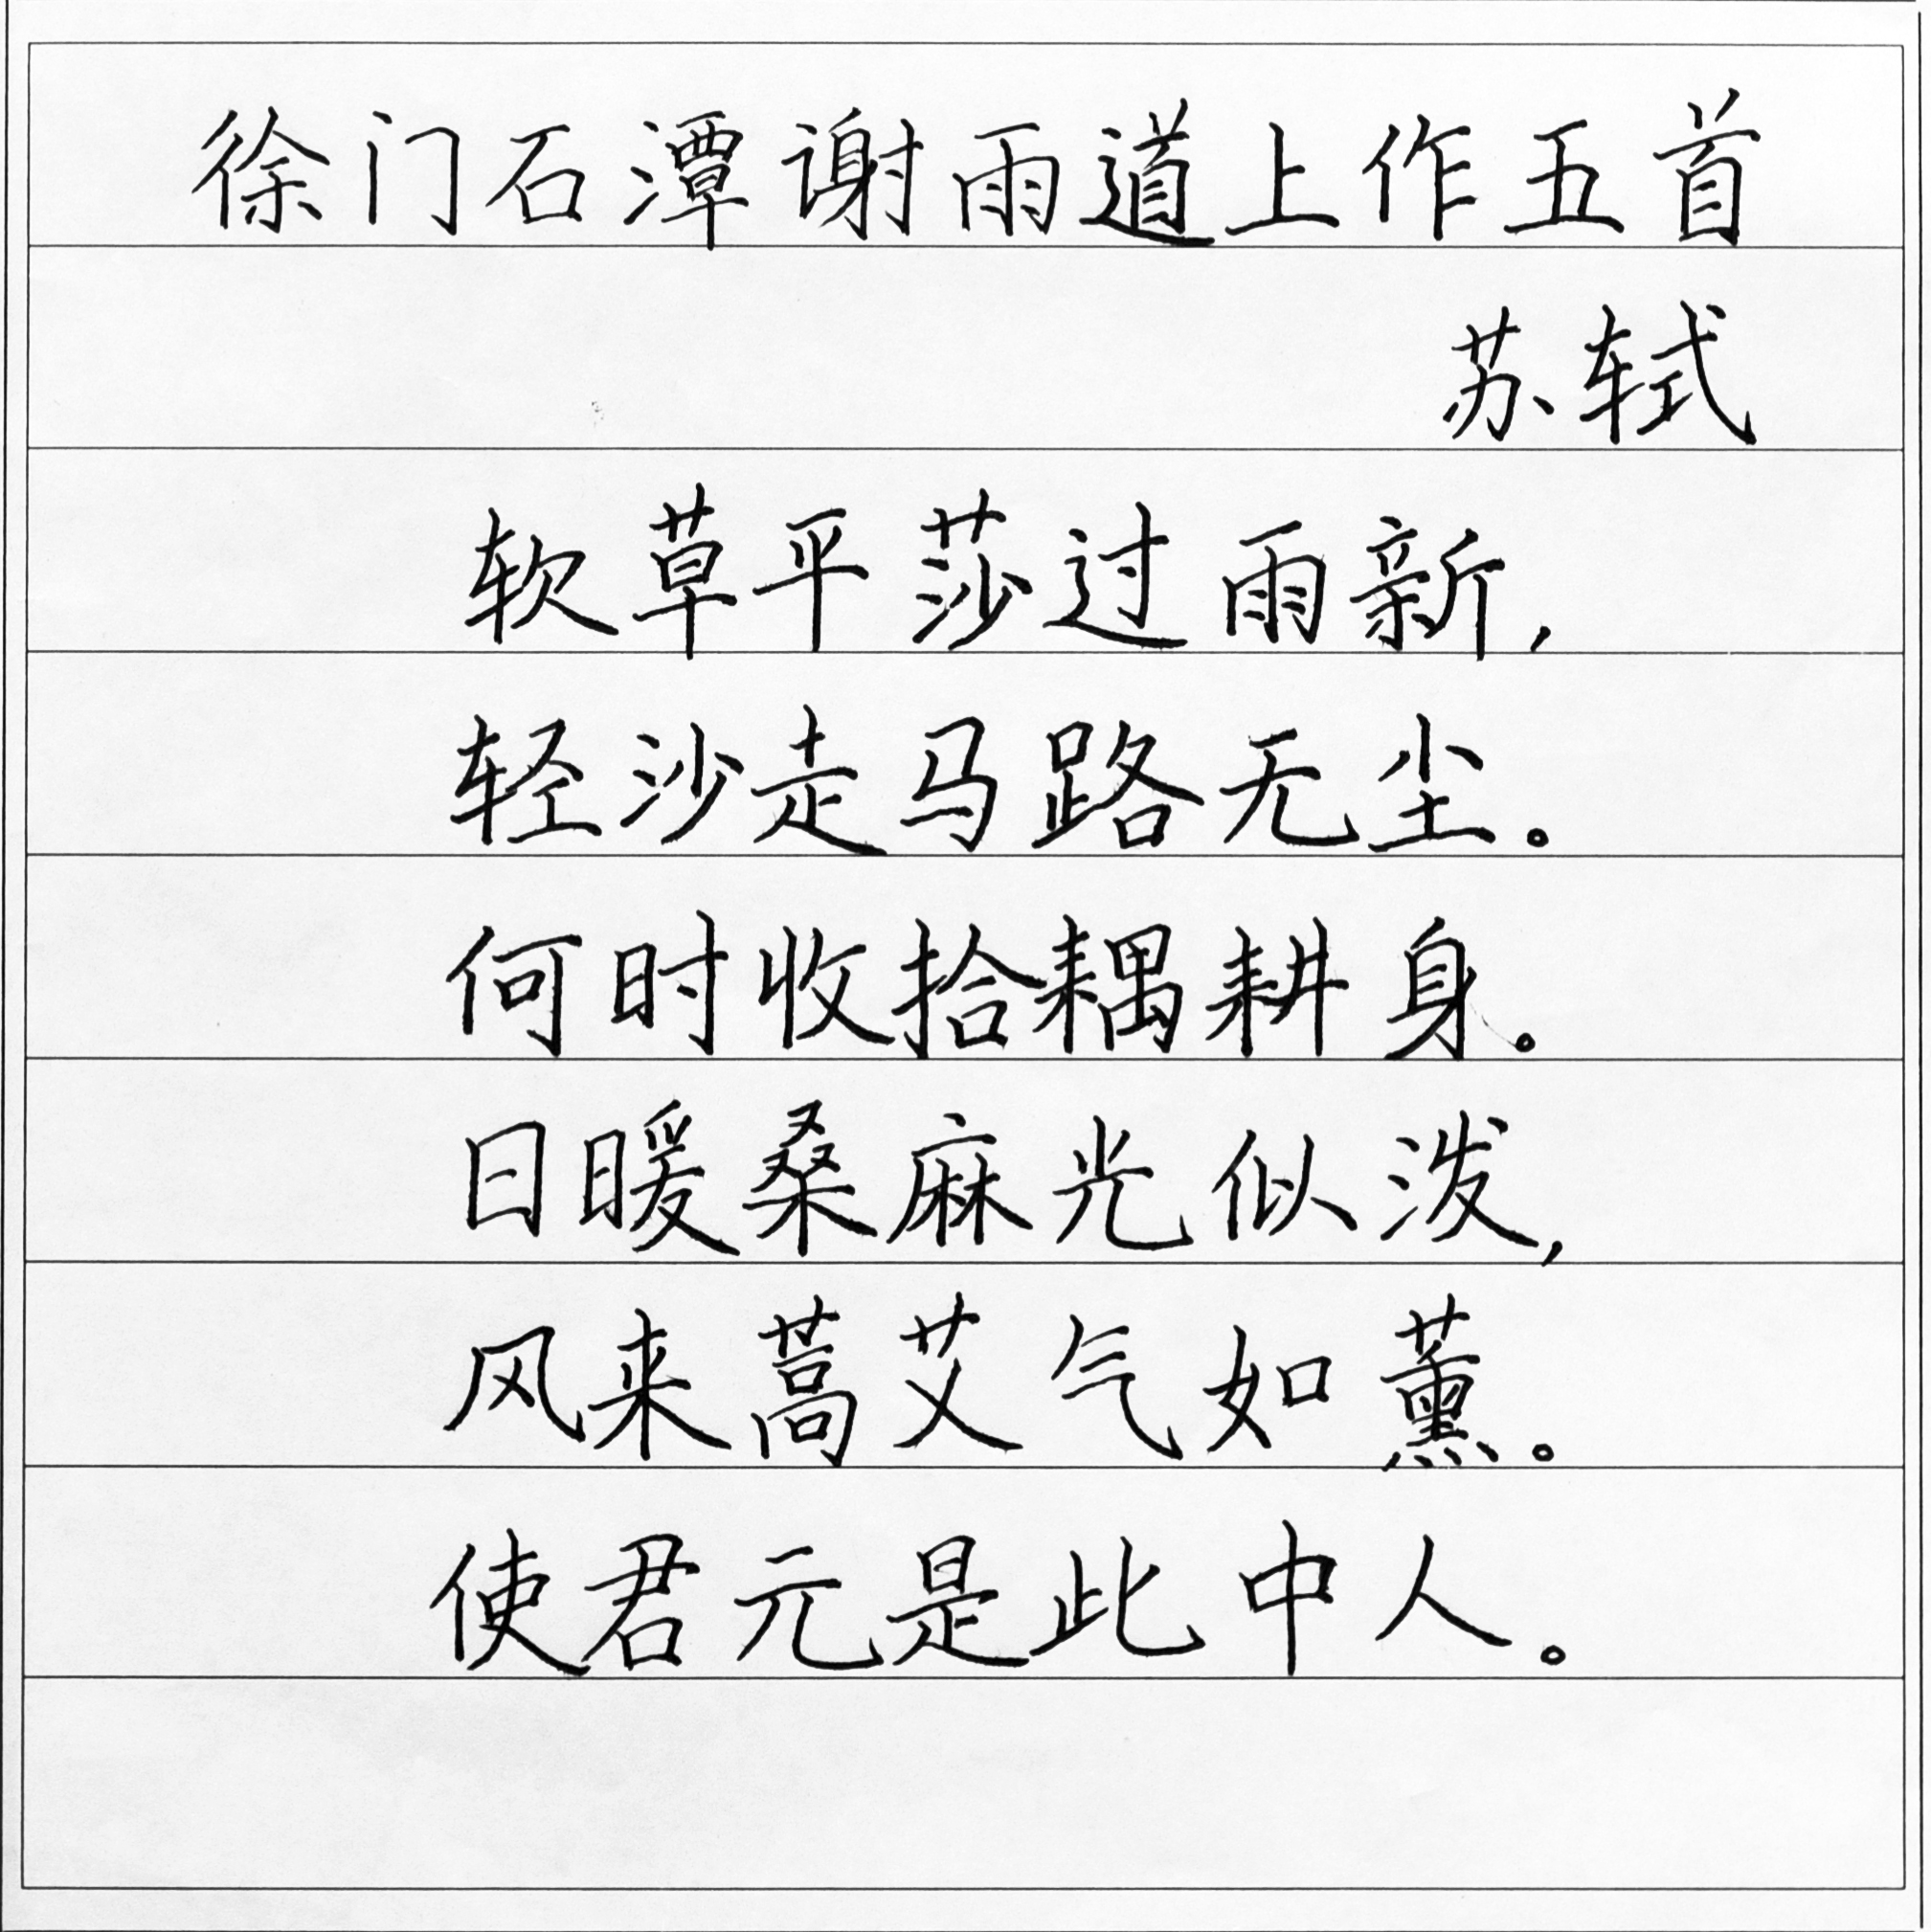 徐门石潭谢雨道上作五首
苏轼
软草平莎过雨新,
轻沙走马路无尘。
何时收拾耦耕身。
日暖桑麻光似泼,
风来蒿艾气如薰。
使君元是此中人。